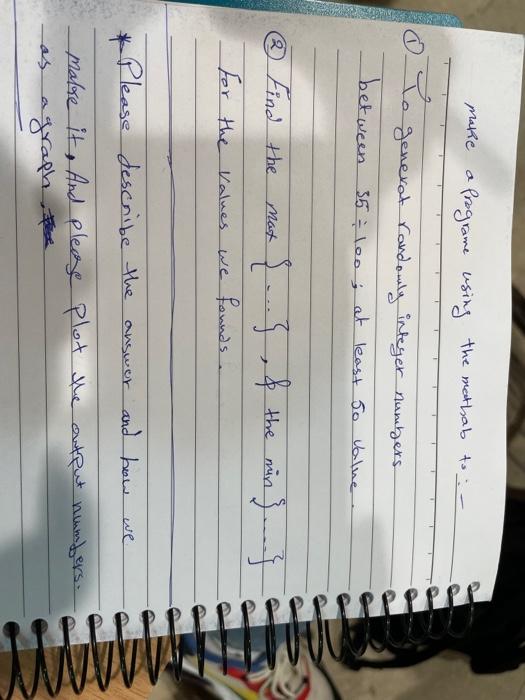 make a Programe using the mathab to :-
① To generat randomly integer numbers
between 35 ÷ 100 ; at least 50 value.
② Find the max {....} , & the min {....}
for the values we founds.
* Please describe the answer and how we
make it, And please plot the output numbers.
as a graph.